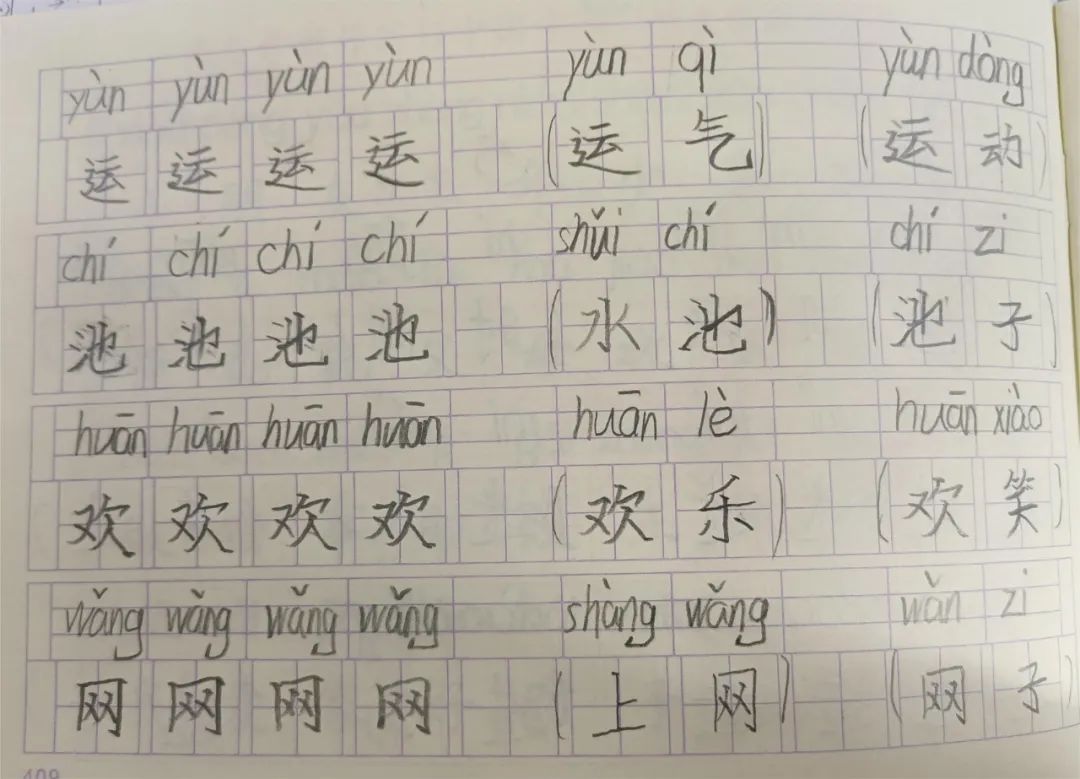 yùn yùn yùn yùn yùn qì yùn dòng
运 运 运 运 (运 气) (运 动)
chí chí chí chí shuǐ chí chí zi
池 池 池 池 (水 池) (池 子)
huān huān huān huān huān lè huān xiào
欢 欢 欢 欢 (欢 乐) (欢 笑)
wǎng wǎng wǎng wǎng shàng wǎng wǎn zi
网 网 网 网 (上 网) (网 子)